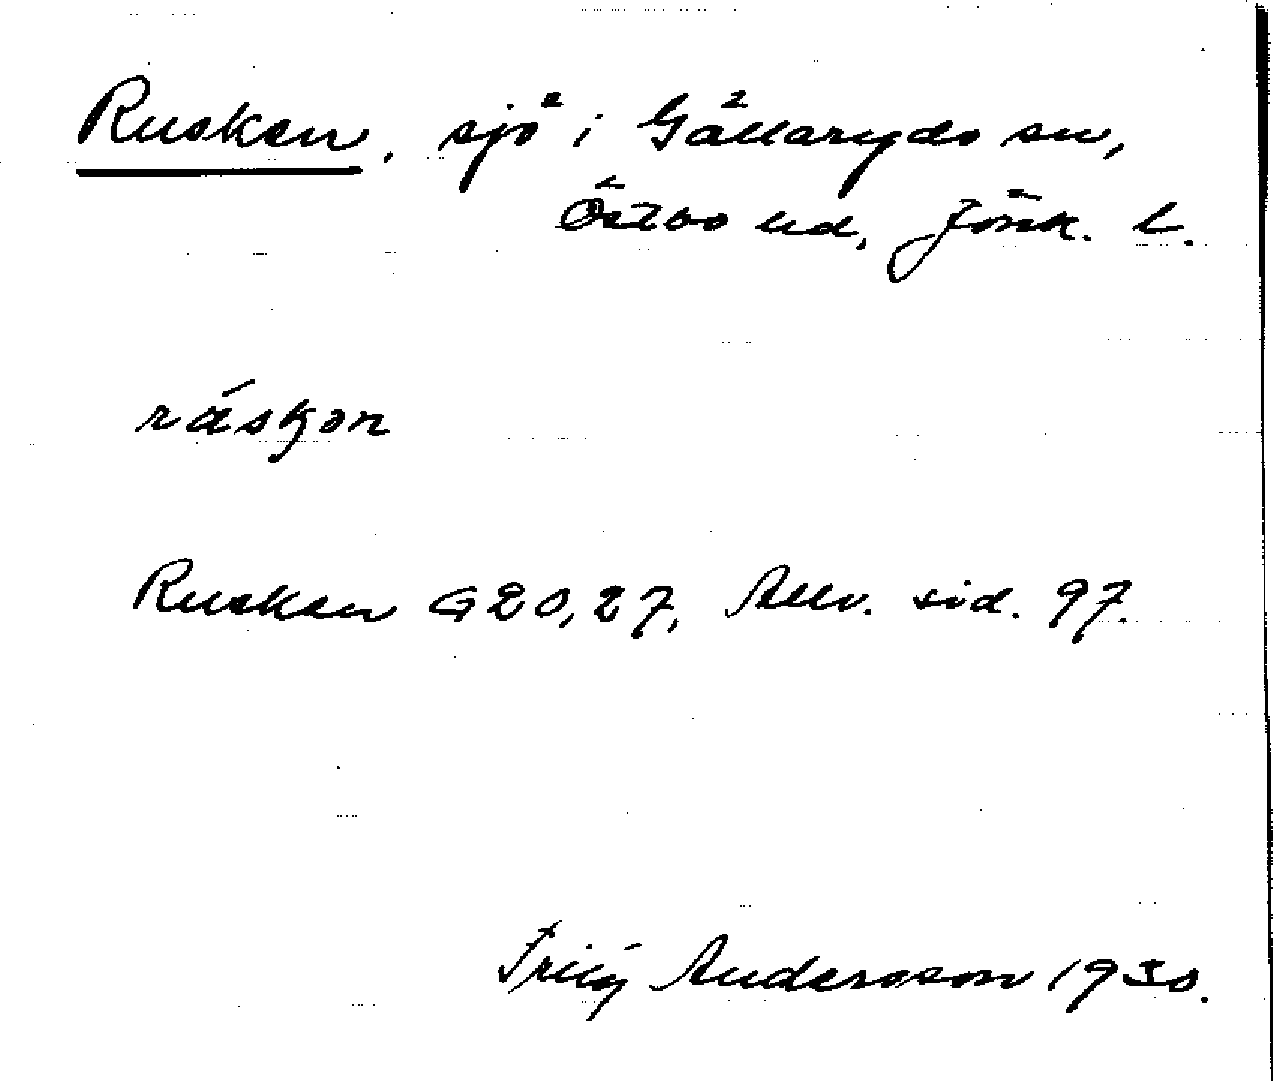 Rusken, sjö i Gällaryds sn,
Östbo hd, Jönk. l.
ráskon
Rusken G20, 27, Allv. sid. 97.
Andersson 1930.